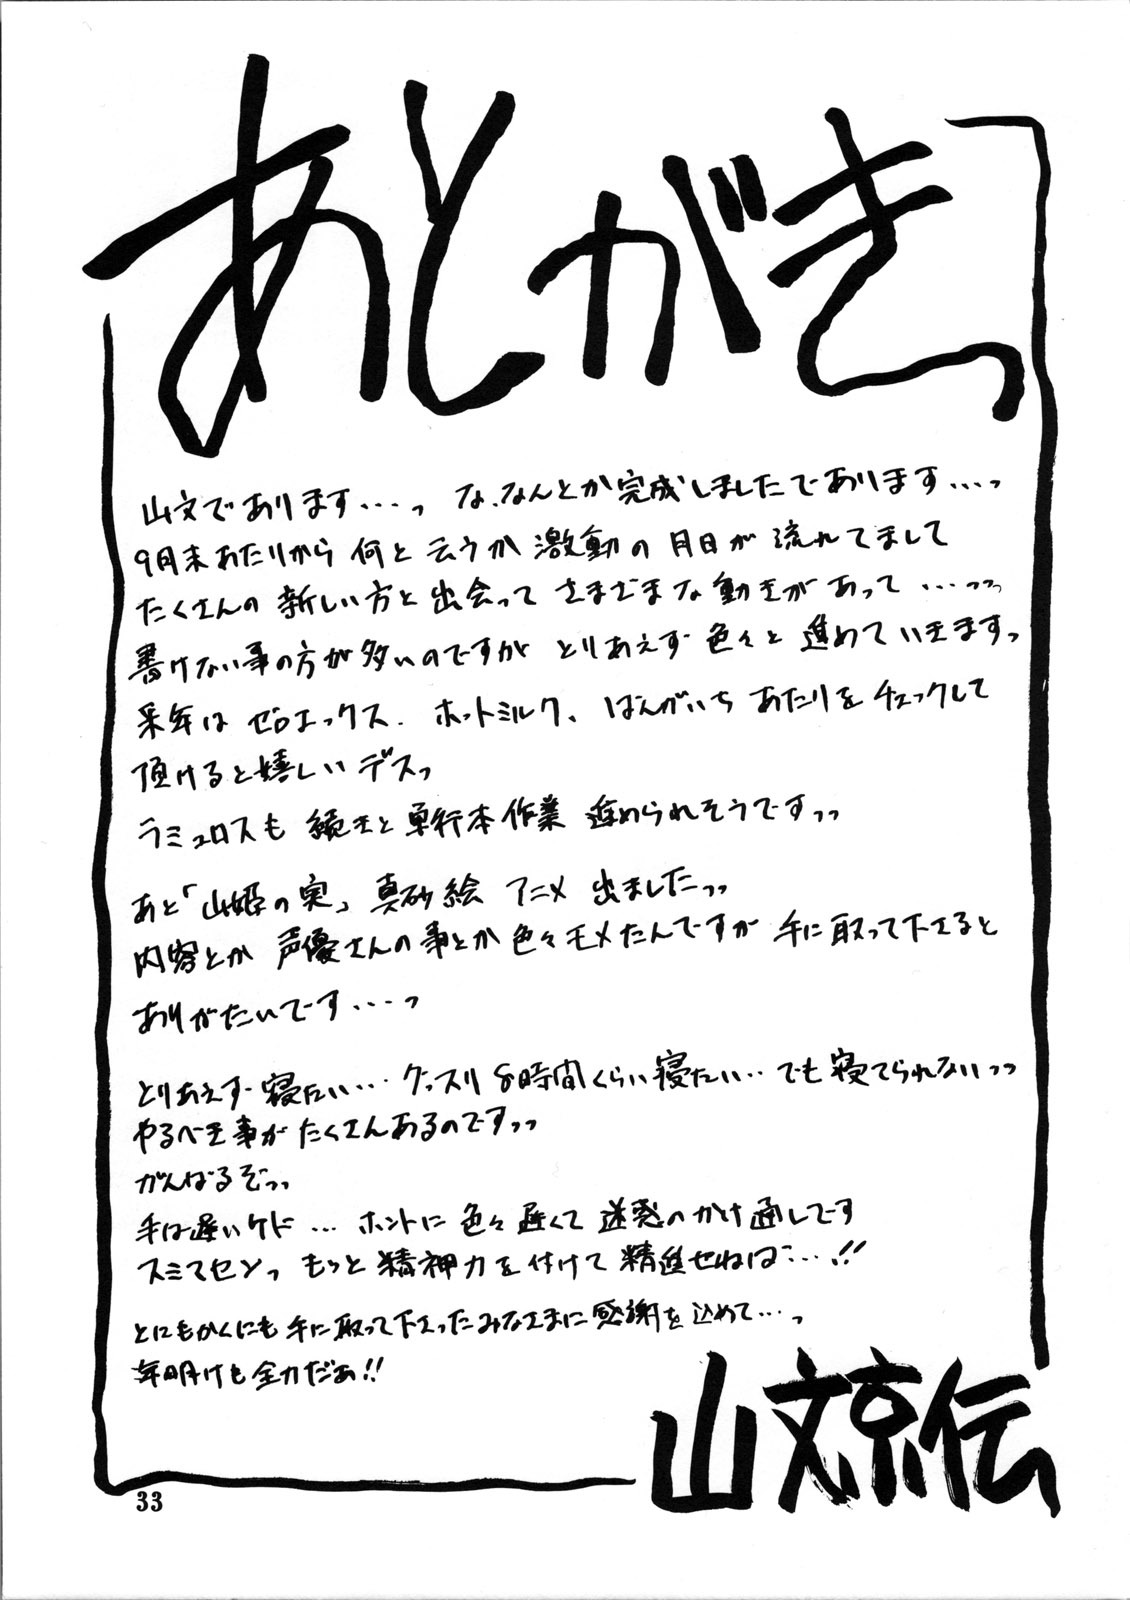 あとがきっ
山文であります・・・っ な、なんとか完成しましたであります・・・っ
9月末あたりから 何と云うか 激動の 月日が 流れてまして
たくさんの 新しい方と 出会って さまざまな 動きが あって ・・・っっっ
書けない事の方が多いのですが とりあえず 色々と 進めていきますっ
来年は ゼロエックス、ホットミルク、ばんがいち あたりを チェックして
頂けると嬉しい デスっ
ラミュロスも 続きと 単行本作業 進められそうですっっ
あと「山姫の実」真砂絵 アニメ 出ましたっっ
内容とか 声優さんの事とか 色々モメたんですが 手に取って下さると
ありがたいです・・・っ
とりあえず 寝たい・・・グッスリ 8時間くらい 寝たい・・・でも 寝てられないっっ
やるべき事が たくさんあるのですっっ
がんばるぞっっ
手は遅いケド ・・・ホントに 色々 遅くて 迷惑の かけ通しです
スミマセンっ もっと 精神力を付けて 精進せねば・・・!!
とにもかくにも 手に取って下さったみなさまに 感謝を込めて・・・っ
年明けも全力だぁ!!
山文京伝
33